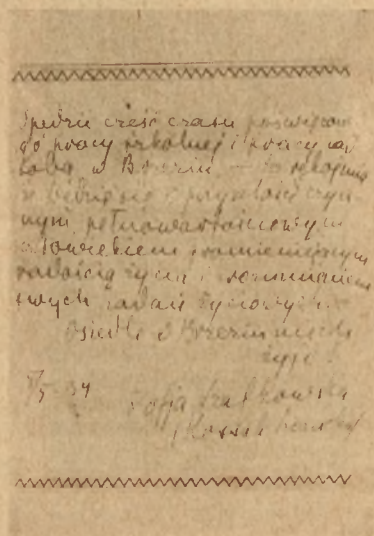 Spędzić część czasu poświęcone
do pracy szkolnej i pracy nad
sobą w Brzeziu — to rękojmia
że będzie się w przyszłości czyn-
nym pełnowartościowym
człowiekiem promieniejącym
radością życia i rozumieniem
swych zadań życiowych.
Osiedle w Brzeziu niech
żyje!
5/5 34 Zofja